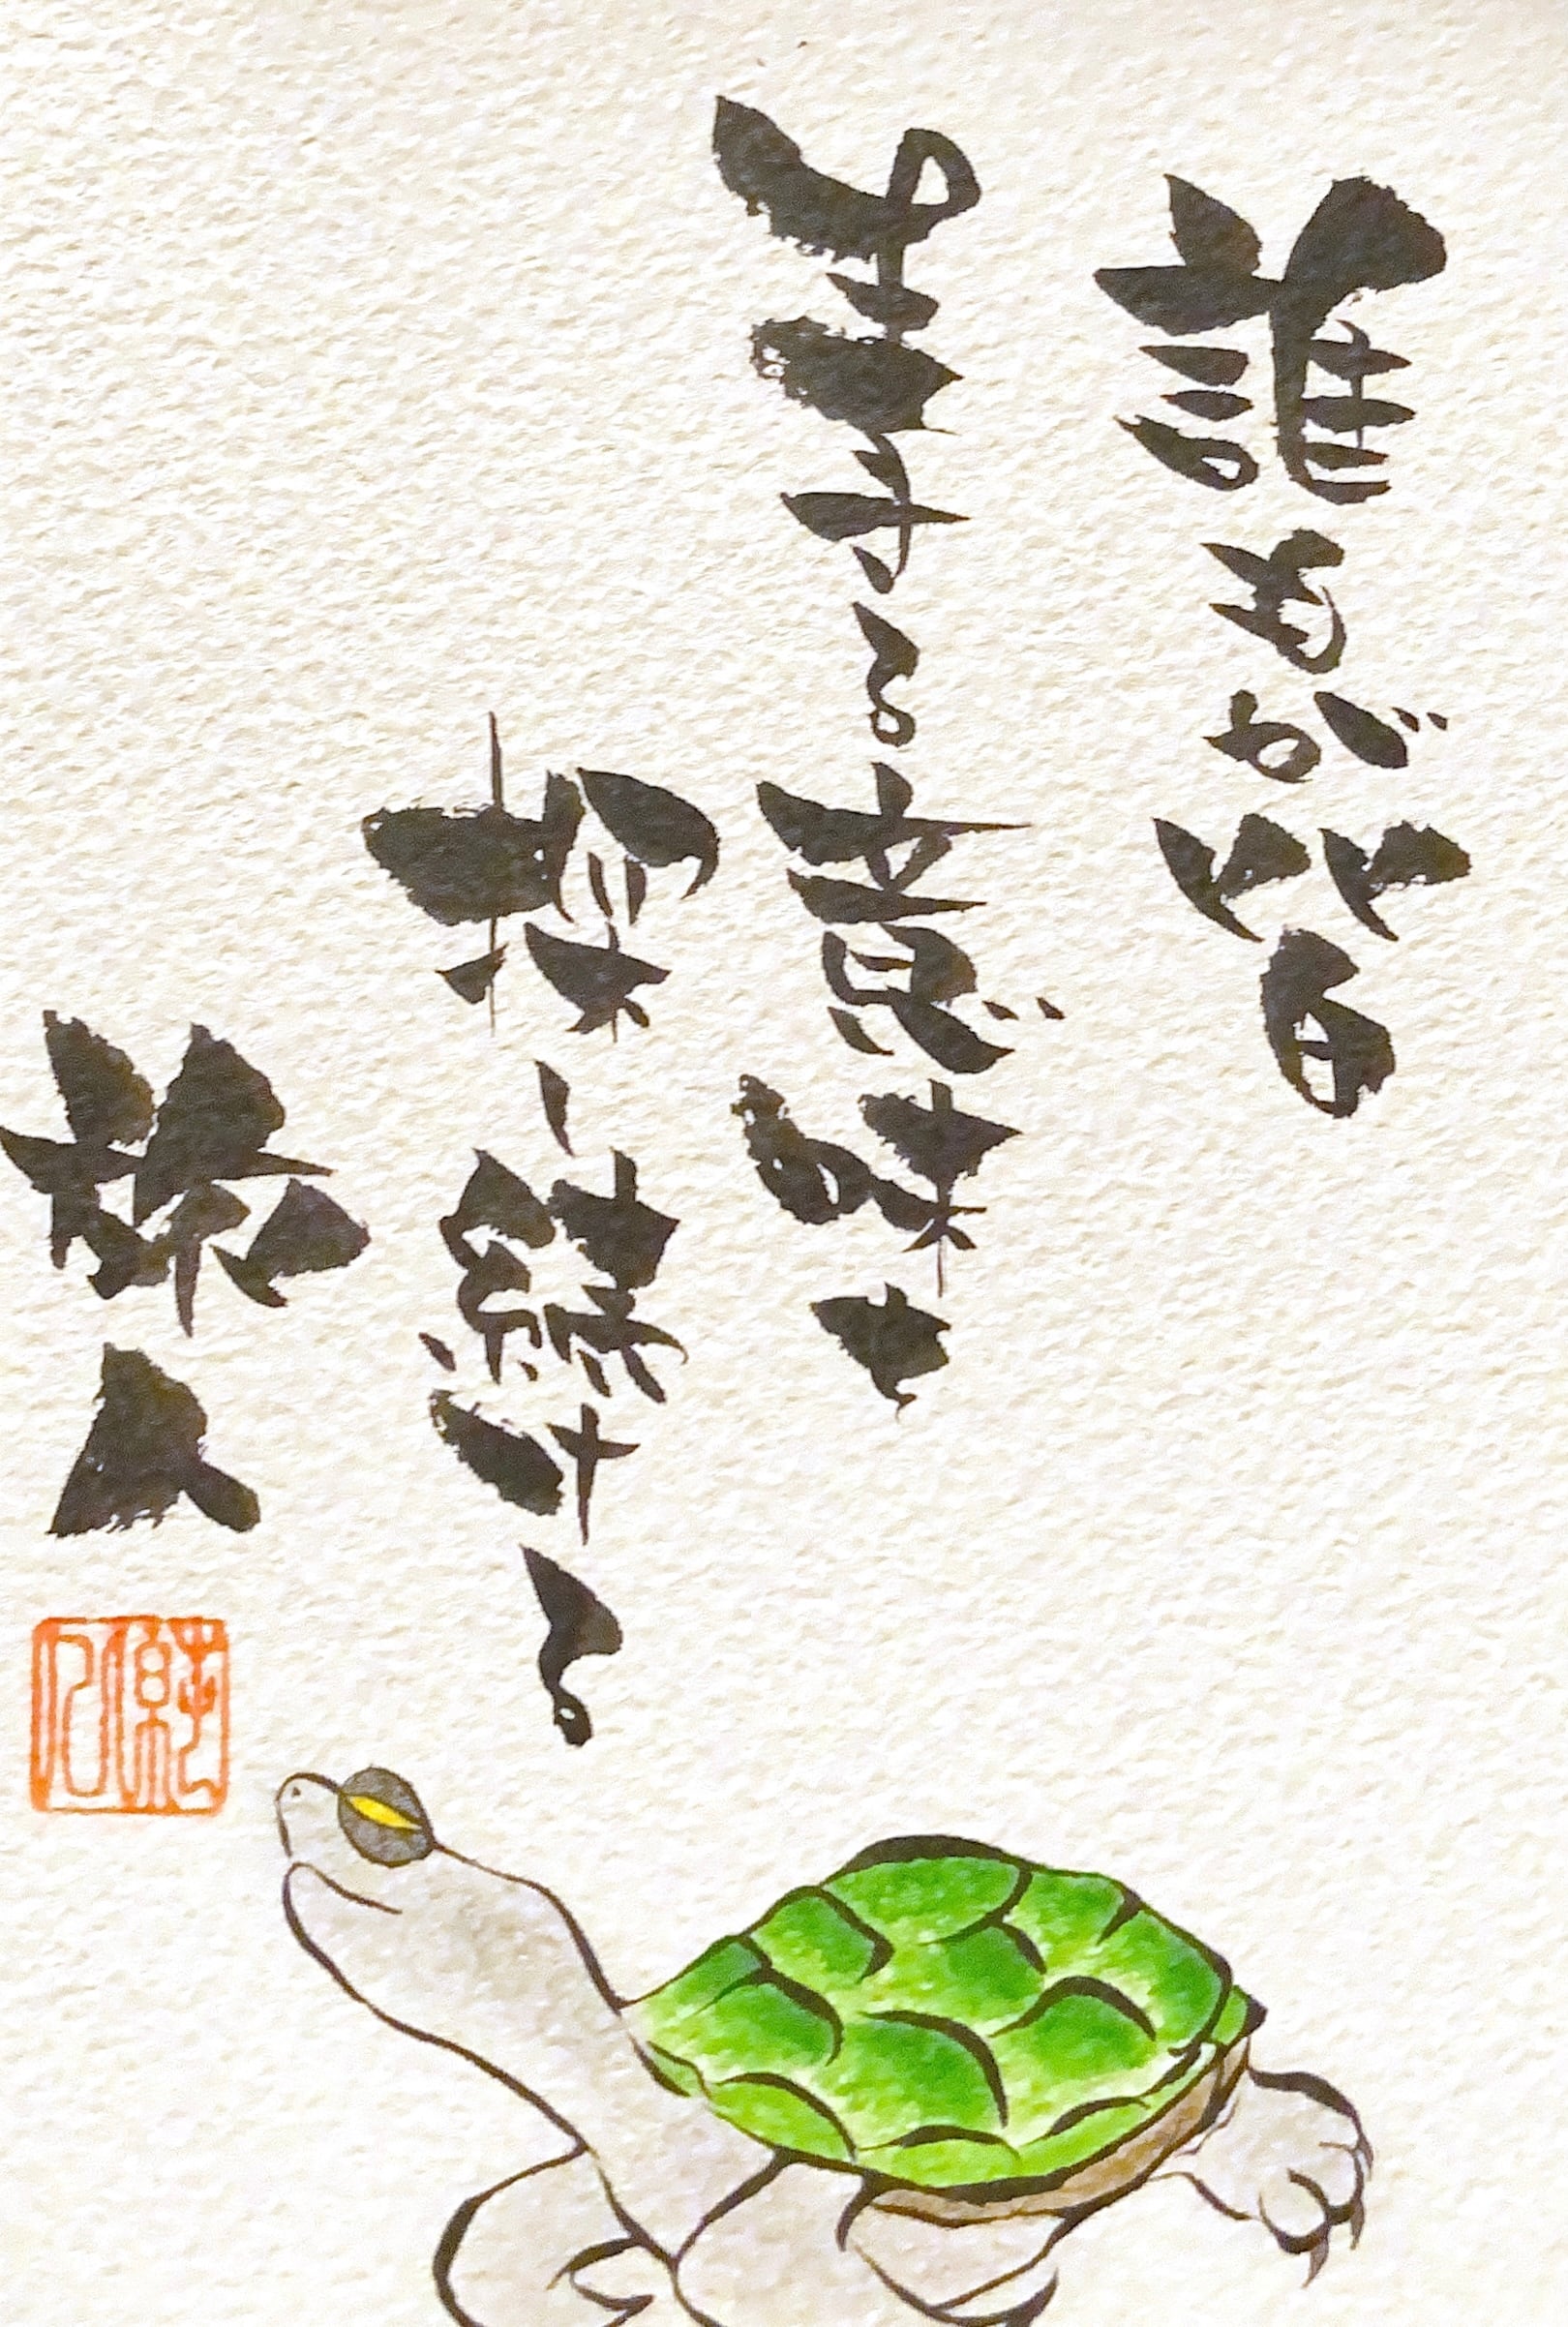 誰もが皆
生きる意味を
探し続ける
旅人